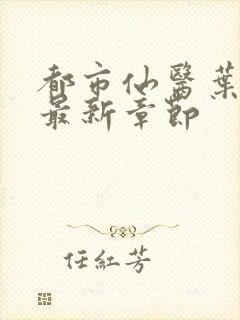 都市仙醫葉
最新章節
任紅芳